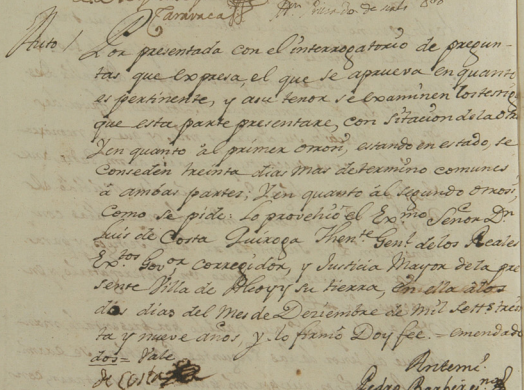 Taravaca
Auto /
Por presentada con el interrogatorio de pregun-
tas que expresa, el que se aprueva en quanto
es pertinente, y asu tenor se examinen los testigos
que esta parte presentare, con sitacion de la otra
Y en quanto al primer otrosi, estando en estado, se
conseden treinta dias mas de termino comunes
â ambas partes; Y en quanto âl segundo otrosi,
Como se pide: lo provehió el Exmo Señor Dn
Luis de Costa Quiroga Thente Genl de los Reales
Extos Govor Corregidor, y Justicia Mayor de la pre
sente Villa de Alcoy y su tierra, en ella alos
dos dias del Mes de Deziembre de Mil Setts trein
ta y nueve años, y lo firmó Doy fee. = emendado
dos = Vale
de Costa
Antemi
Pedro